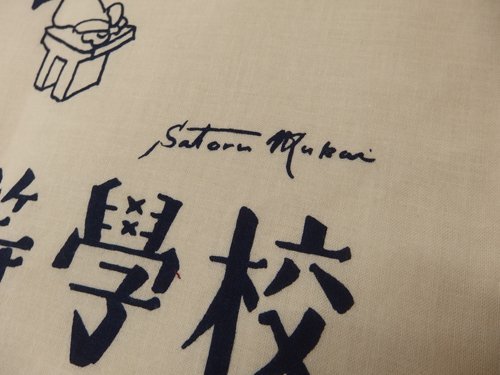 Satoru Mukai
等學校